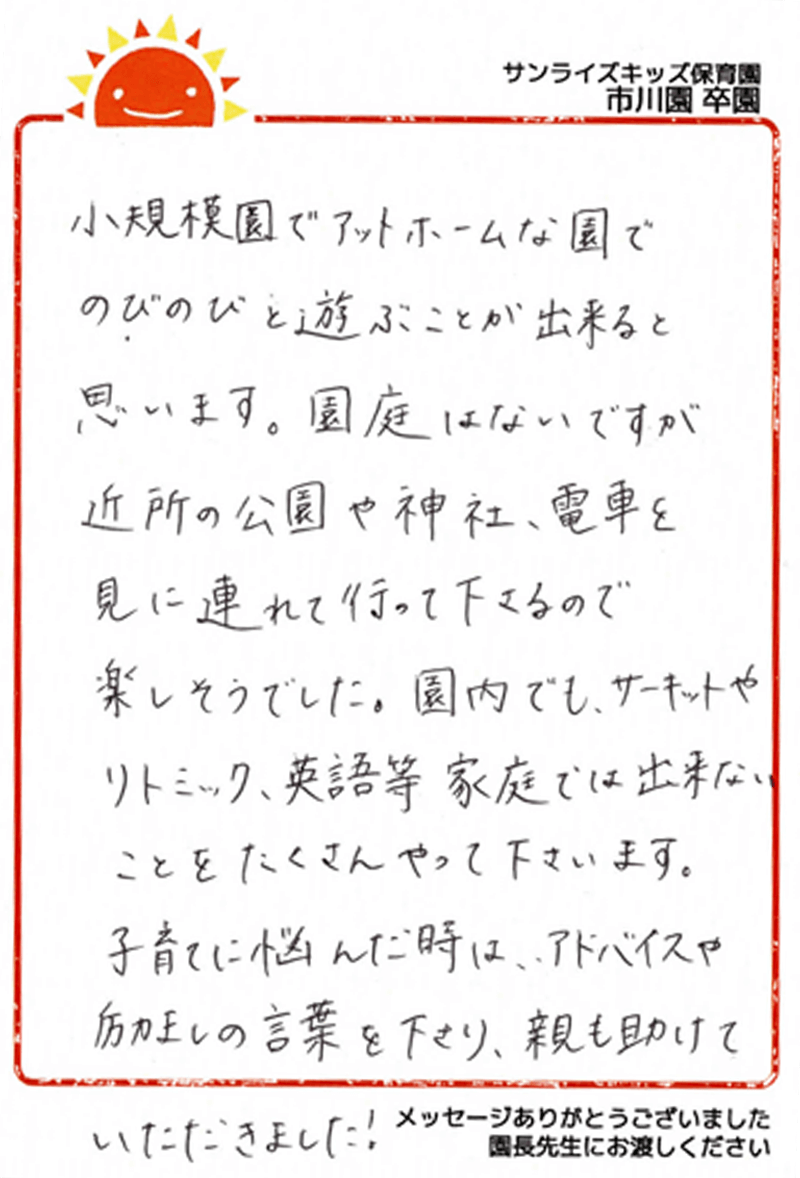 サンライズキッズ保育園
市川園 卒園
小規模園でアットホームな園で
のびのびと遊ぶことが出来ると
思います。園庭はないですが
近所の公園や神社、電車を
見に連れて行って下さるので
楽しそうでした。園内でも、サーキットや
リトミック、英語等 家庭では出来ない
ことをたくさんやって下さいます。
子育てに悩んだ時は、アドバイスや
励ましの言葉を下さり、親も助けて
いただきました!
メッセージありがとうございました
園長先生にお渡しください